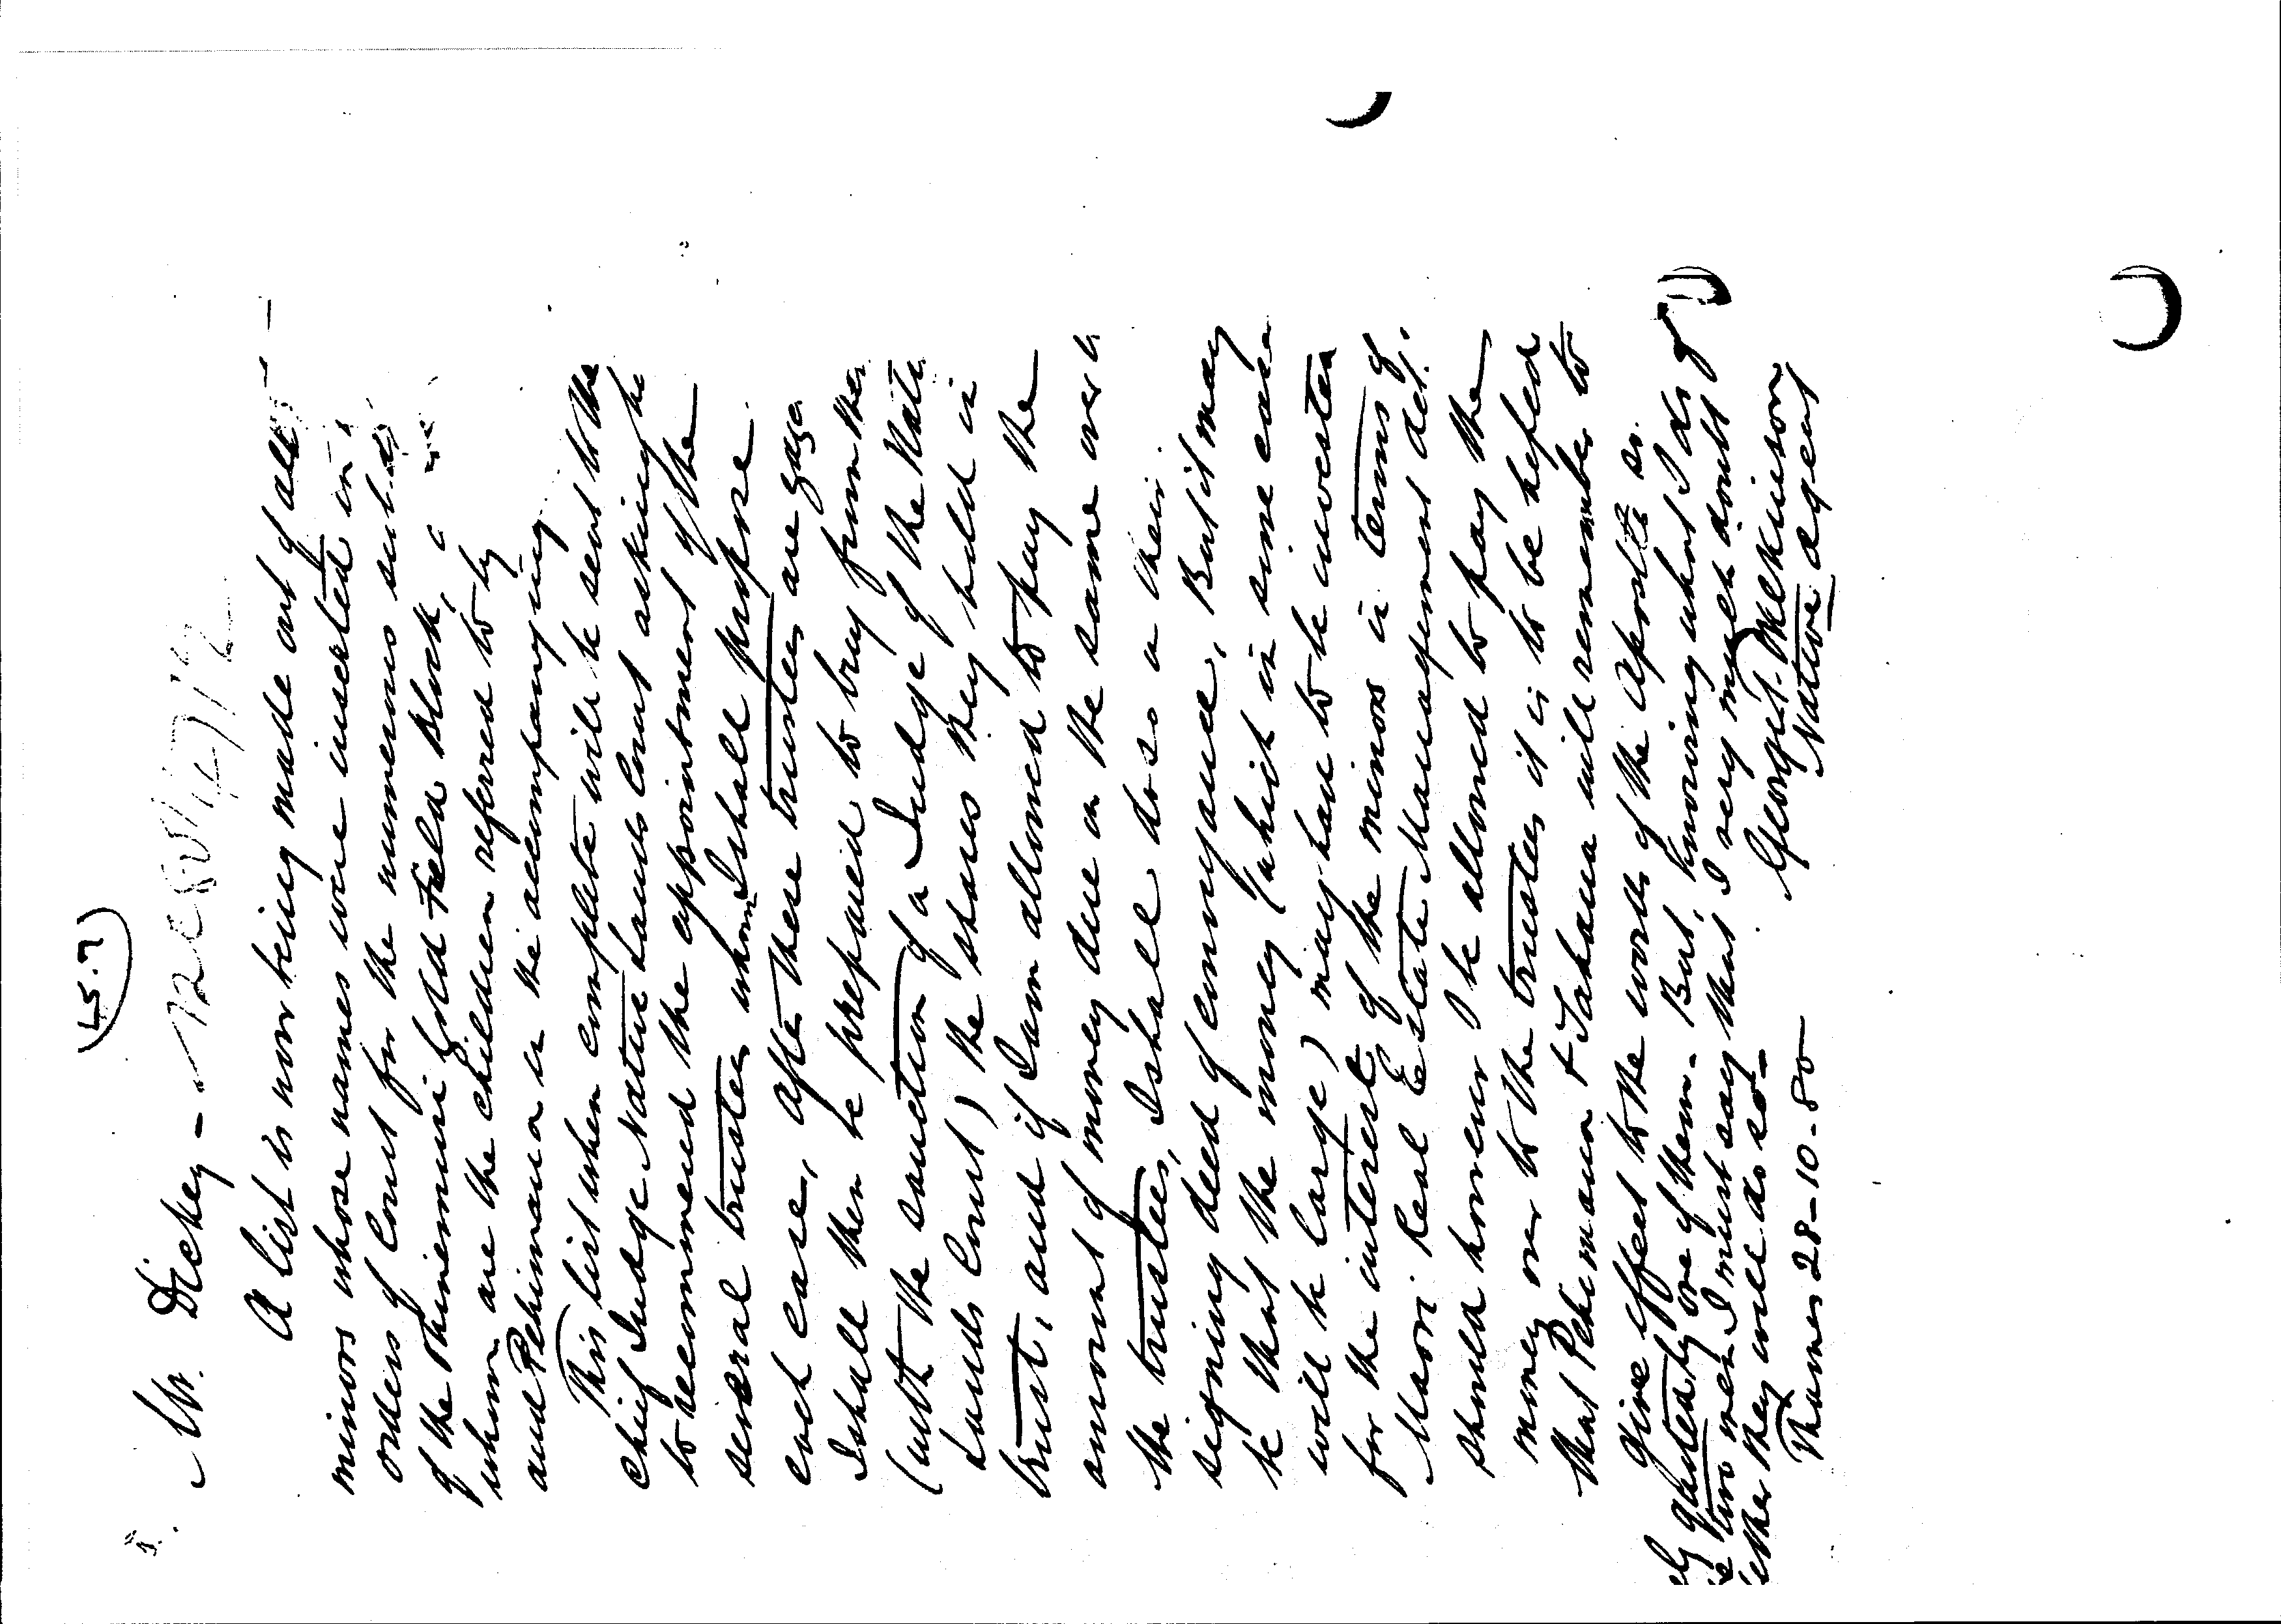 (5.7)
Mr. Dickey -
A list is now being made out of all
minors whose names were inserted in
orders of Court for the numerous
of the Thineomuri Gold Field Block,
whom are the children referred to by
and Pehimana in the accompanying
This list when complete will be sent to the
Chief Judge Native Lands Court asking he
to recommend the appointment of the
several trustees whom I shall propose.
each case, after these trustees are
I shall then be prepared to buy from them
(with the sanction of a Judge of the Native
Lands Court) the shares they hold in
trust, and if I am allowed to pay the
amount of money due on the same over to
the trustees, I shall do so on their
signing deed of conveyance, But it may
be that the money (which in some cases
will be large) may have to be invested
for the interest of the minors in terms of
Maori Real Estate Management Act.
Should however I be allowed to pay the
money over to the trustees it is to be hoped
that Pehimana & Tahana will remember to
give effect to the words of the Apostle so
quoted by one of them - But, knowing what I do of
two men I must say that I very much doubt
whether they will do so -
George T. Wilkinson
Native Agent
Thames 28-10-80